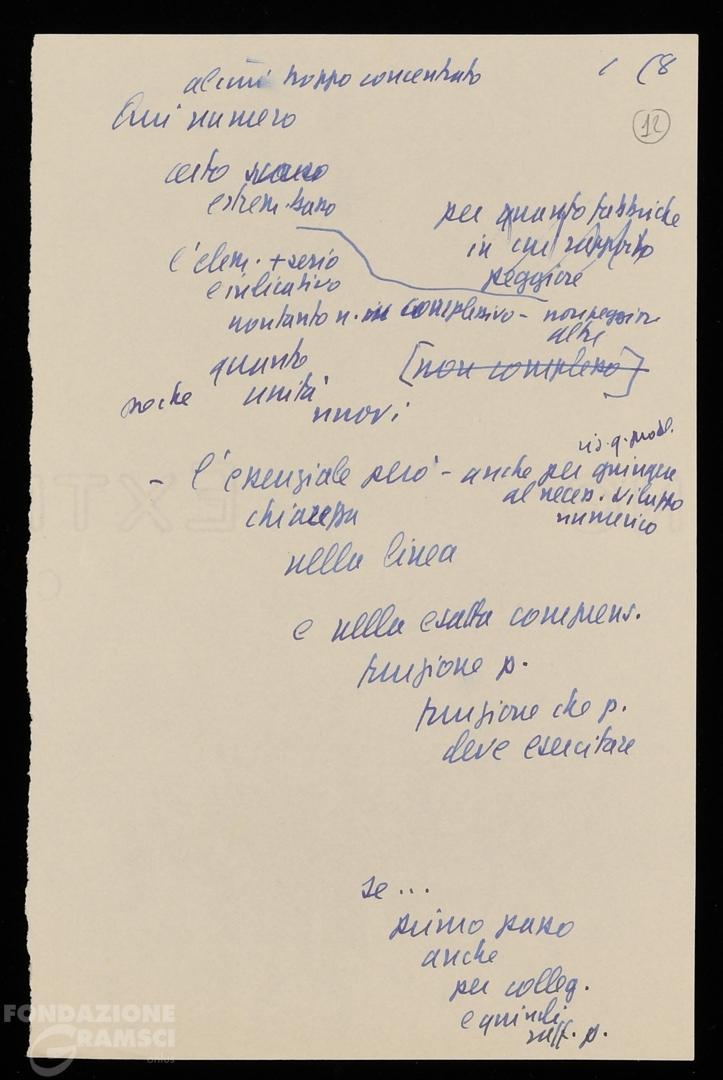 alcuni troppo concentrato
( (8
12
Qui numero
certo
estrem. basso
per quanto fabbriche
in cui rapporto
peggiore
l'elem. + serio
e indicativo
non tanto n. in complessivo - non peggior
altre
quanto
[non complesso]
unità
nuovi
- l'essenziale però - anche per giungere
al necess. sviluppo
numerico
chiarezza
nella linea
e nella esatta comprens.
funzione p.
funzione che p.
deve esercitare
se...
primo passo
anche
per colleg.
e quindi
raff. p.
FONDAZIONE
GRAMSCI
onlus